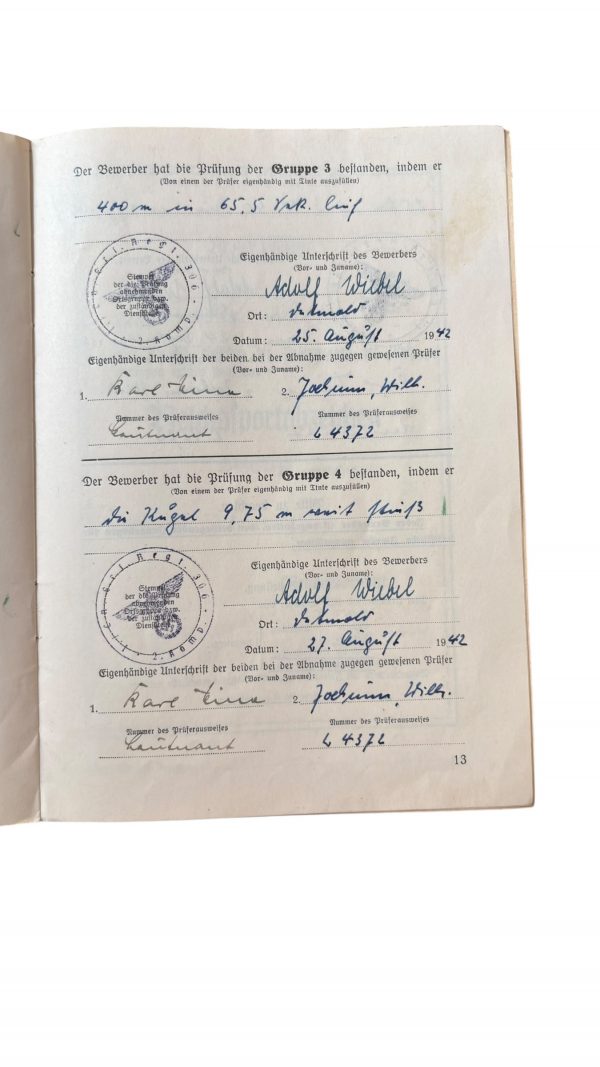 Der Bewerber hat die Prüfung der Gruppe 3 bestanden, indem er
(Von einem der Prüfer eigenhändig mit Tinte auszufüllen)
400 m in 65,5 Sek. lief
Stempel
der die Prüfung
abnehmenden
Ortsgruppe bzw.
der zuständigen
Dienststelle
Regt. 306
2. Komp.
Eigenhändige Unterschrift des Bewerbers
(Vor- und Zuname):
Adolf Wiebel
Ort: Detmold
Datum: 25. August 1942
Eigenhändige Unterschrift der beiden bei der Abnahme zugegen gewesenen Prüfer
(Vor- und Zuname):
1. Karl 2. Jochum, Wilh.
Nummer des Prüferausweises Nummer des Prüferausweises
Leutnant L 4372
Der Bewerber hat die Prüfung der Gruppe 4 bestanden, indem er
(Von einem der Prüfer eigenhändig mit Tinte auszufüllen)
die Kugel 9,75 m weit stieß
Stempel
der die Prüfung
abnehmenden
Ortsgruppe bzw.
der zuständigen
Dienststelle
Regt. 306
2. Komp.
Eigenhändige Unterschrift des Bewerbers
(Vor- und Zuname):
Adolf Wiebel
Ort: Detmold
Datum: 27. August 1942
Eigenhändige Unterschrift der beiden bei der Abnahme zugegen gewesenen Prüfer
(Vor- und Zuname):
1. Karl 2. Jochum, Wilh.
Nummer des Prüferausweises Nummer des Prüferausweises
Leutnant L 4372
13